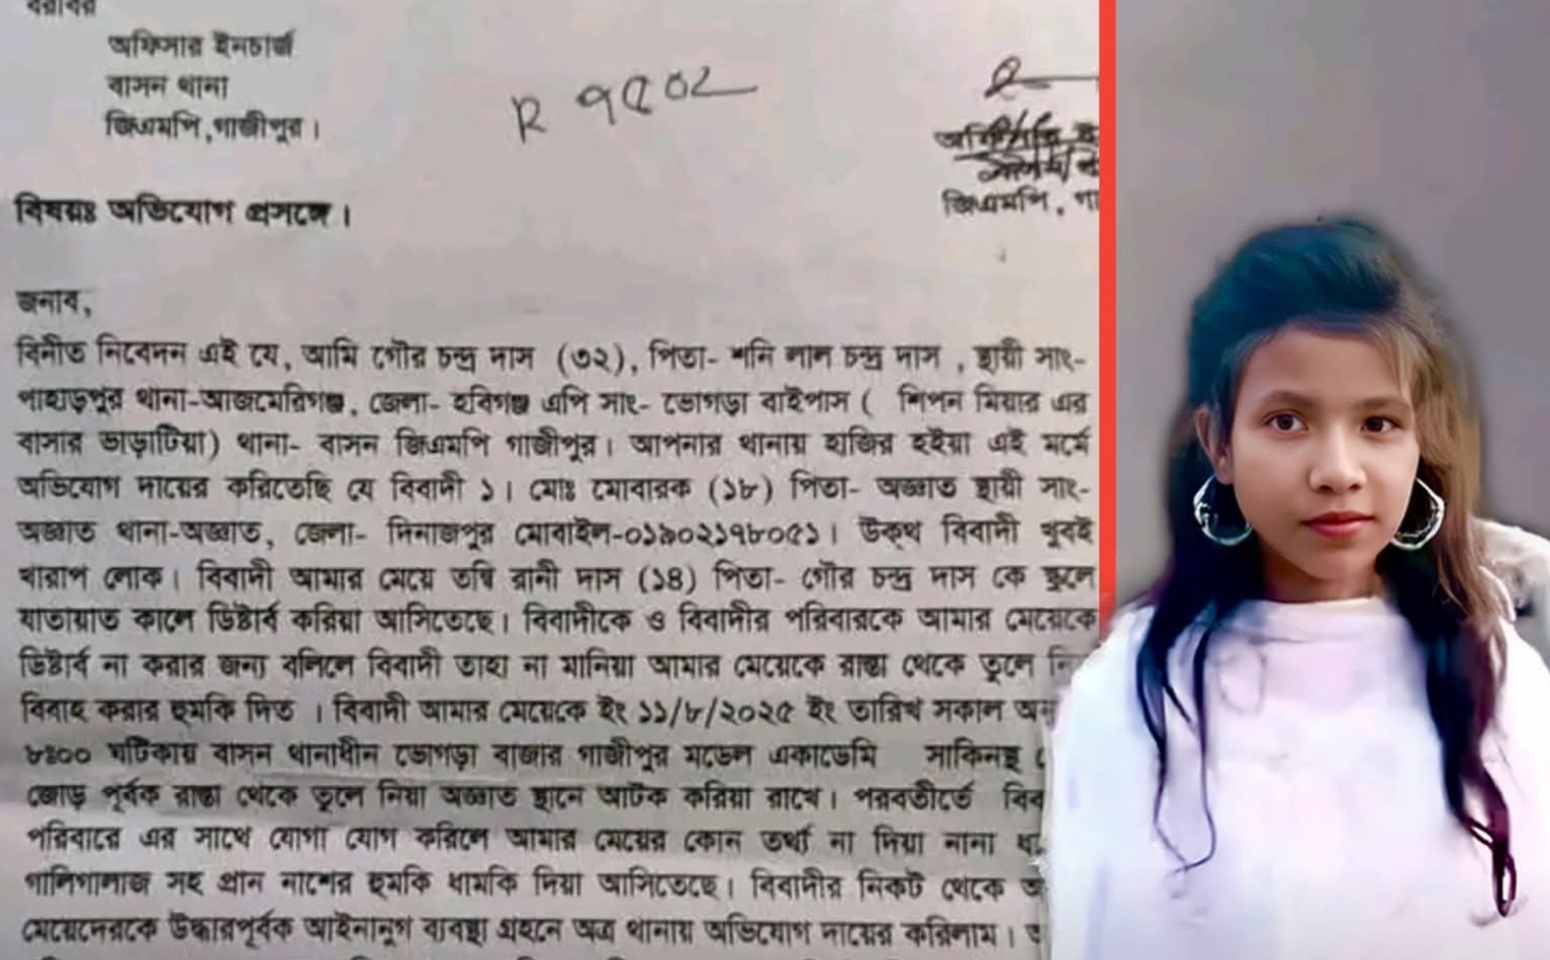 বরাবর
অফিসার ইনচার্জ
বাসন থানা
জিএমপি,গাজীপুর।
R ৭৫০২
জিএমপি, গা
বিষয়ঃ অভিযোগ প্রসঙ্গে।
জনাব,
বিনীত নিবেদন এই যে, আমি গৌর চন্দ্র দাস (৩২), পিতা- শনি লাল চন্দ্র দাস , স্থায়ী সাং-
পাহাড়পুর থানা-আজমেরিগঞ্জ, জেলা- হবিগঞ্জ এপি সাং- ভোগড়া বাইপাস ( শিপন মিয়ার এর
বাসার ভাড়াটিয়া) থানা- বাসন জিএমপি গাজীপুর। আপনার থানায় হাজির হইয়া এই মর্মে
অভিযোগ দায়ের করিতেছি যে বিবাদী ১। মোঃ মোবারক (১৮) পিতা- অজ্ঞাত স্থায়ী সাং-
অজ্ঞাত থানা-অজ্ঞাত, জেলা- দিনাজপুর মোবাইল-০১৯০২১৭৮০৫১। উক্থ বিবাদী খুবই
খারাপ লোক। বিবাদী আমার মেয়ে তন্বি রানী দাস (১৪) পিতা- গৌর চন্দ্র দাস কে স্কুলে
যাতায়াত কালে ডিষ্টার্ব করিয়া আসিতেছে। বিবাদীকে ও বিবাদীর পরিবারকে আমার মেয়েকে
ডিষ্টার্ব না করার জন্য বলিলে বিবাদী তাহা না মানিয়া আমার মেয়েকে রাস্তা থেকে তুলে
বিবাহ করার হুমকি দিত । বিবাদী আমার মেয়েকে ইং ১১/৮/২০২৫ ইং তারিখ সকাল
৮ঃ০০ ঘটিকায় বাসন থানাধীন ভোগড়া বাজার গাজীপুর মডেল একাডেমি সাকিনস্থ
জোড় পূর্বক রাস্তা থেকে তুলে নিয়া অজ্ঞাত স্থানে আটক করিয়া রাখে। পরবর্তীতে
পরিবারে এর সাথে যোগা যোগ করিলে আমার মেয়ের কোন তথ্য না দিয়া নানা
গালিগালাজ সহ প্রান নাশের হুমকি ধামকি দিয়া আসিতেছে। বিবাদীর নিকট থেকে
মেয়েদেরকে উদ্ধারপূর্বক আইনানুগ ব্যবস্থা গ্রহনে অত্র থানায় অভিযোগ দায়ের করিলাম।